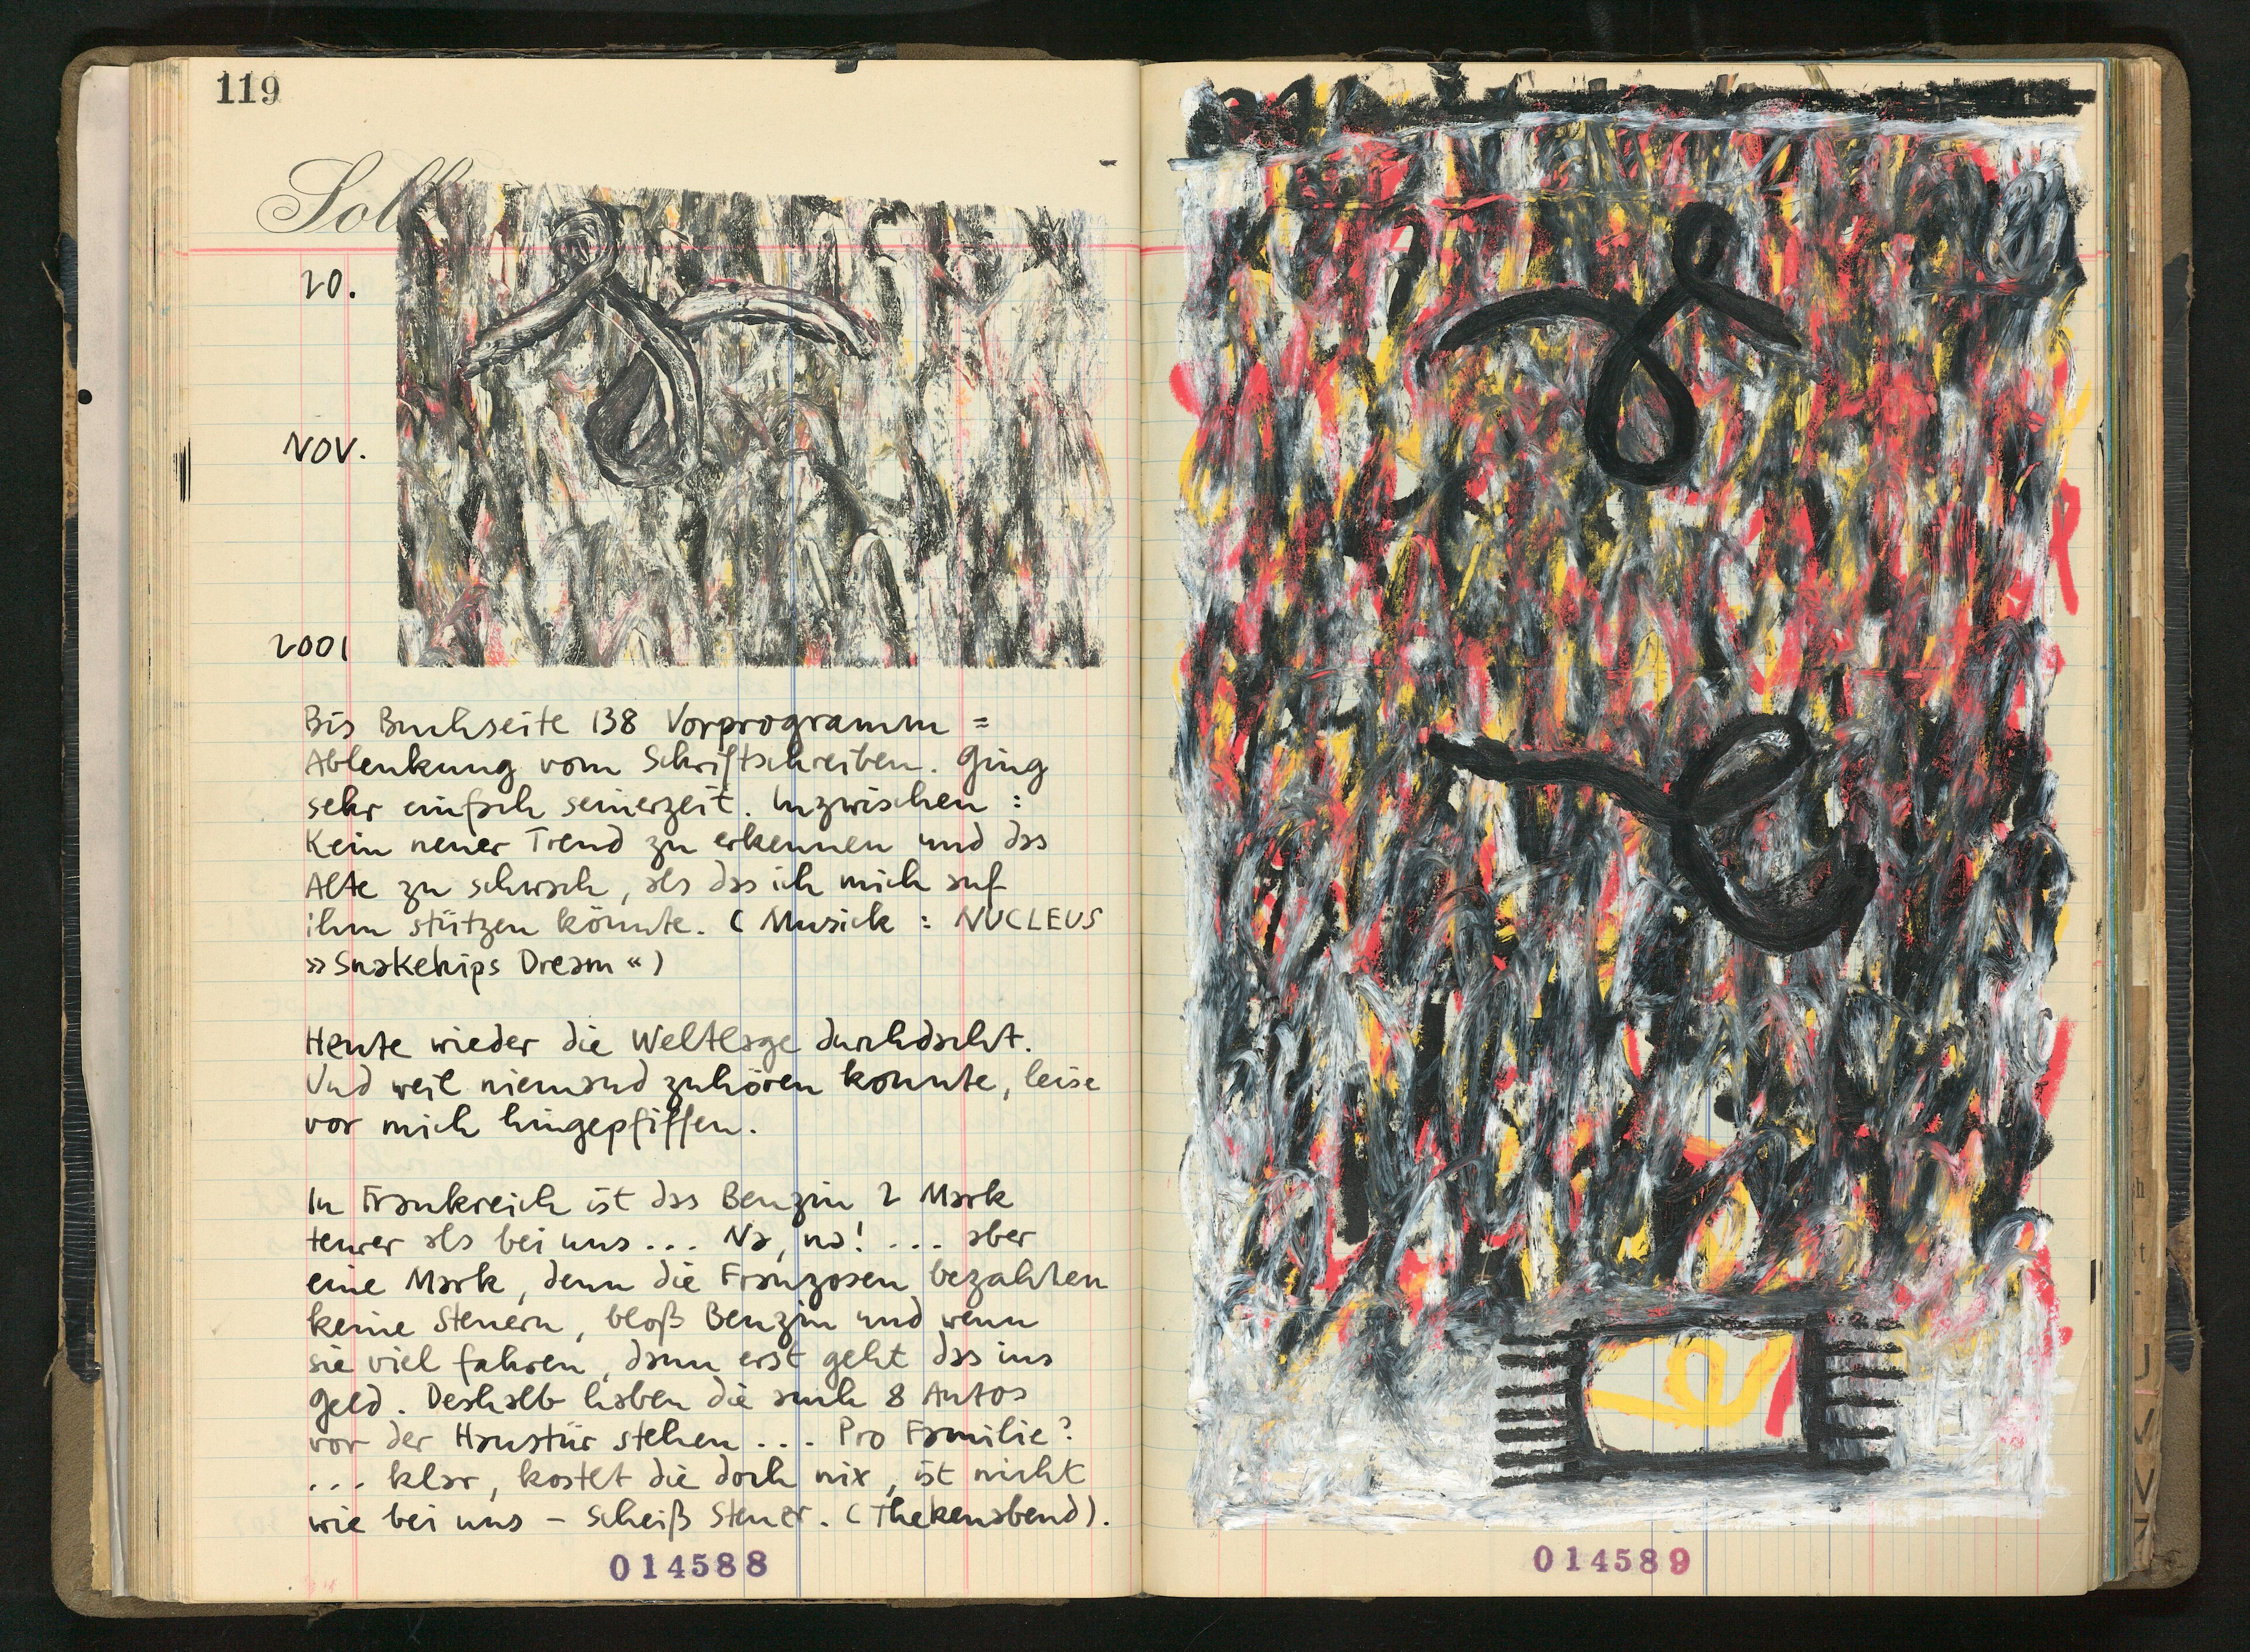 119
Soll
20.
NOV.
2001
Bis Buchseite 138 Vorprogramm =
Ablenkung vom Schriftschreiben. Ging
sehr einfach seinerzeit. Inzwischen :
Kein neuer Trend zu erkennen und das
Alte zu schwach, als das ich mich auf
ihm stützen könnte. ( Musick : NUCLEUS
»Snakehips Dream« )
Heute wieder die Weltlage durchdacht.
Und weil niemand zuhören konnte, leise
vor mich hingepfiffen.
In Frankreich ist das Benzin 2 Mark
teurer als bei uns ... Na, na! ... aber
eine Mark, denn die Franzosen bezahlen
keine Steuern, bloß Benzin und wenn
sie viel fahren, dann erst geht das ins
Geld. Deshalb haben die auch 8 Autos
vor der Haustür stehen ... Pro Familie?
... klar, kostet die doch nix, ist nicht
wie bei uns – scheiß Steuer. (Thekenabend).
014588
014589